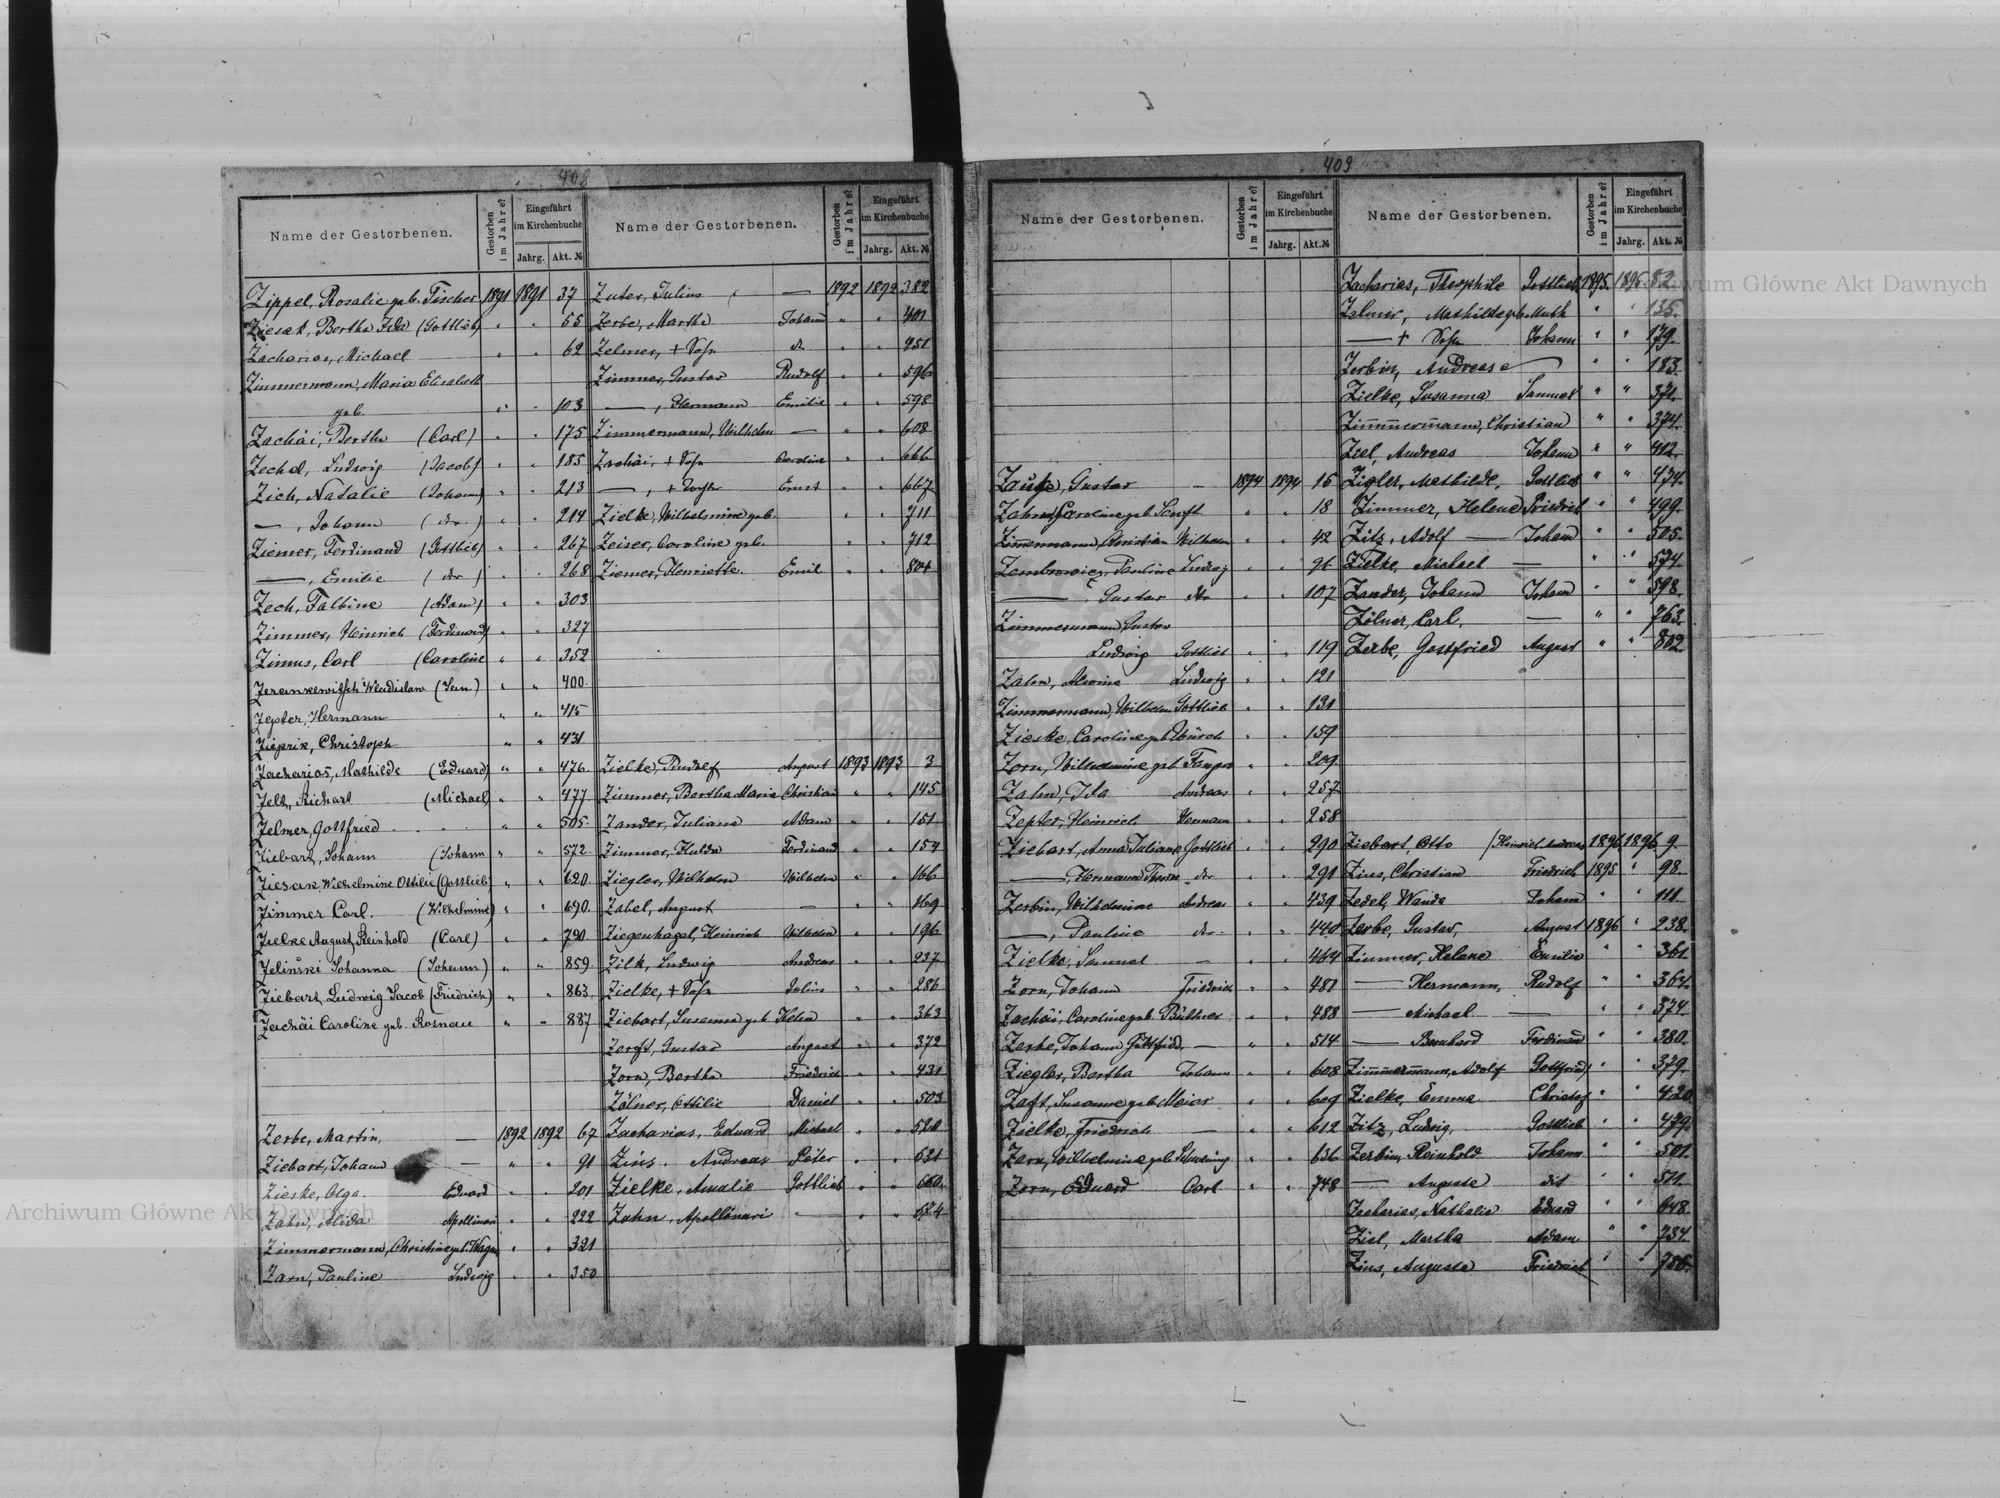 408
Name der Gestorbenen.
Gestorben im Jahre?
Eingeführt im Kirchenbuche
Jahrg.
Akt. №
Name der Gestorbenen.
Gestorben im Jahre?
Eingeführt im Kirchenbuche
Jahrg.
Akt. №
Zippel, Rosalie geb. Fischer 1891 1891 37
Ziesak, Bertha Ida (Gottlieb) " " 55
Zacharias, Michael " " 62
Zimmermann, Maria Elisabeth
geb. " " 103
Zachäi, Bertha (Carl) " " 175
Zechel, Ludwig (Jacob) " " 185
Zich, Natalie (Johann) " " 213
—, Johann (der) " " 214
Ziemer, Ferdinand (Gottlieb) " " 267
—, Emilie (der) " " 268
Zech, Falbine (Adam) " " 303
Zimmer, Heinrich (Ferdinand) " " 327
Zimus, Carl (Caroline " " 352
Wladislaw " " 400
Zepter, Hermann " " 415
Christoph " " 431
Zacharias, Mathilde (Eduard) " " 476
Zelt, Richart (Michael) " " 477
Zelmer, Gottfried " " 505
Ziebart, Johann (Johann " " 572
Ziesak, Wilhelmine Ottilie (Gottlieb) " " 620
Zimmer Carl. (Wilhelmine) " " 690
Zielke August, Reinhold (Carl) " " 790
Zelinski Johanna (Johann) " " 859
Ziebart, Ludwig Jacob (Friedrich) " " 863
Zachäi Caroline geb. Rosnau " " 887
Zerbe, Martin, — 1892 1892 67
Ziebart, Johann — " " 91
Zieske, Olga. Eduard " " 201
Zahn, Alida Apollinari " " 222
Zimmermann, Christine geb. Wagn " " 321
Zarn, Pauline Ludwig " " 350
Zuter, Julius — 1892 1892 382
Zerbe, Martha Johann " " 401
Zelmer, + Sohn " " 451
Zimmer, Gustav Rudolf " " 596
—, Hermann Emilie " " 598
Zimmermann, Wilhelm — " " 608
Zachäi, + Sohn Caroline " " 666
—, + Ernst " " 667
Zielke, Wilhelmine geb. " " 711
Zeiser, Caroline geb. " " 712
Ziemer, Henriette. Emil " " 804
Zielke, Rudolf August 1893 1893 3
Zimmer, Bertha Marie Christian " " 145
Zander, Juliane Adam " " 151
Zimmer, Hulda Ferdinand " " 154
Ziegler, Wilhelm Wilhelm " " 166
Zabel, August — " " 169
Ziegenhagel, Heinrich Wilhelm " " 196
Zilk, Ludwig Andreas " " 237
Zielke, + Sohn Julius " " 286
Ziebart, Susanna geb. " " 363
Zerft, Gustav August " " 372
Zorn, Bertha Friedrich " " 431
Zölner, Ottilie Daniel " " 503
Zacharias, Eduard Michael " " 520
Zins. Andreas Peter " " 621
Zielke, Amalie Gottlieb " " 660
Zahn, Apollinari — " " 624
409
Name der Gestorbenen.
Gestorben im Jahre?
Eingeführt im Kirchenbuche
Jahrg.
Akt. №
Name der Gestorbenen.
Gestorben im Jahre?
Eingeführt im Kirchenbuche
Jahrg.
Akt. №
Gustav — 1894 1894 15
Zahn, Caroline geb. Sanft " " 18
Zimmermann, Christian Wilhelm " " 42
Pauline Ludwig " " 96
—, Gustav der " " 107
Zimmermann, Gustav
Ludwig Gottlieb " " 119
Zahn, Ludwig " " 121
Zimmermann, Wilhelm Gottlieb " " 131
Zieske, Caroline geb. " " 159
Zorn, Wilhelmine geb. " " 209
Zahn, Ida Andreas " " 257
Zepter, Heinrich Hermann " " 258
Ziebart, Anna Juliane Gottlieb " " 290
—, Hermann der " " 291
Zerbin, Wilhelmine Andreas " " 439
—, Pauline der " " 440
Zielke, Samuel — " " 464
Zorn, Johann Friedrich " " 481
Zachäi, Caroline geb. Büttner " " 488
Johann Gottfried, — " " 514
Ziegler, Bertha Johann " " 608
Zaft, Susanne geb. Meier " " 609
Zielke, Friedrich — " " 612
Zarn, Wilhelmine geb. " " 636
Zorn, Eduard Carl " " 748
Zacharias, Theophile Gottlieb 1895 1895 82.
Zelmer, Mathilde geb. Muth " " 135.
— + Sohn Johann " " 179.
Zerbin, Andreas " " 183.
Zielke, Susanna Samuel " " 371.
Zimmermann, Christian " " 374.
Ziel, Andreas Johann " " 412.
Zigler, Mathilde, Gottlieb " " 474.
Zimmer, Helene Friedrich " " 499.
Zitz, Adolf — Johann " " 505.
Zielke, Michael — " " 574.
Zander, Johann Johann " " 598.
Zölner, Carl, — " " 763.
Zerbe, Gottfried August " " 802
Ziebart, Otto 1896 1896 9.
Zins, Christian Friedrich 1895 " 98.
Zedel, Wanda Johann " " 111
Zerbe, Gustav, August 1896 " 238.
Zimmer, Helene Emilie " " 361.
— Hermann, Rudolf " " 364.
— Michael — " " 374.
— Bernhard Ferdinand " " 380.
Zimmermann, Adolf Gottfried " " 379.
Zielke, Emma Christof " " 420
Zitz, Ludwig, Gottlieb " " 479.
Zerbin, Reinhold Johann " " 501.
— Auguste dit " " 511.
Zacharias, Nathalie Eduard " " 648.
Ziel, Martha Adam " " 734.
Zins, Auguste Friedrich " " 786.
Archiwum Główne Akt Dawnych
Archiwum Główne Akt Dawnych